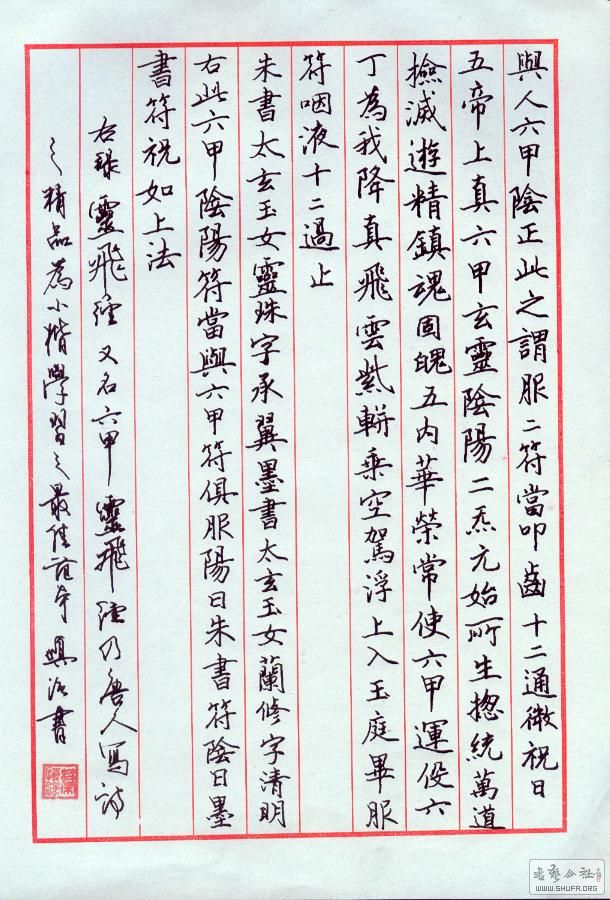 與人六甲陰正此之謂服二符當叩齒十二通微祝曰
五帝上真六甲玄靈陰陽二炁元始所生揔統萬道
撿滅遊精鎮魂固魄五内華榮常使六甲運役六
丁為我降真飛雲紫軿乗空駕浮上入玉庭畢服
符咽液十二過止
朱書太玄玉女靈珠字承翼墨書太玄玉女蘭修字清明
右此六甲陰陽符當與六甲符俱服陽日朱書符陰日墨
書符祝如上法
右録靈飛經又名六甲靈飛經乃唐人寫
之精品為小楷學習之最佳 書
書藝公社
WWW.SHUFA.ORG